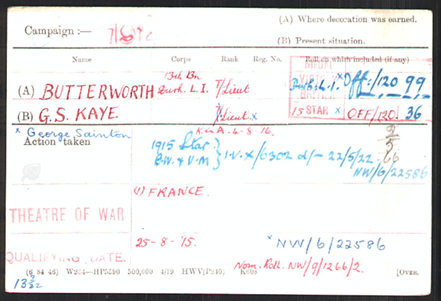 (A) Where decoration was earned.
Campaign :— 
(B) Present situation.
Name Corps Rank Reg. No. Roll on which included (if any)
13th Bn
(A) BUTTERWORTH Durh. L. I. T/Lieut Durh. L. I. Off:/120 99
(B) G.S. KAYE. T/Lieut x 15 STAR x OFF/120. 36
K in A. 4-8-16.
x George Sainton
Action taken
1915 Star
B.W. & V.M } I.V. x/6302 d/- 22/5/22.
NW/6/22586
(1) FRANCE.
THEATRE OF WAR
QUALIFYING DATE.
25-8-15. x NW/6/22586
Nom. Roll. NW/9/1266/2.
(6 34 46) W234—HP5590 500,000 4/19 HWV(P240) K608 [OVER.